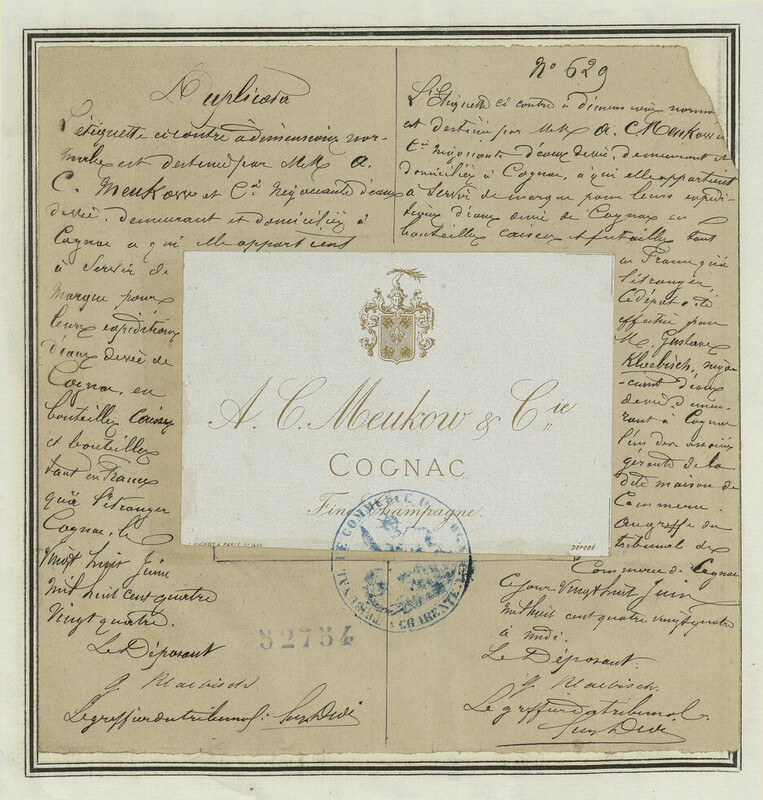 Duplicata
L'étiquette ci contre à dimensions nor-
males est destinée par M.M. A.
C. Meukow et Cie Négociants d'eaux
de vie, demeurant et domiciliés à
Cognac à qui elle appartient
à servir de
marque pour
leurs expéditions
d'eaux de vie de
Cognac, en
bouteilles caisses
et bouteilles
tant en France
qu'à l'étranger
Cognac, le
Vingt huit Juin
mil huit cent quatre
Vingt quatre.
Le Déposant
G Klaebisch.
Le greffier du tribunal:
No 629
L'Etiquette ci contre à dimensions
est destinée par M.M. A. C Meukow
Cie Négociants d'eaux de vie, demeurant et
domiciliés à Cognac, à qui elle appartient
à servir de marque pour leurs expédi-
tions d'eaux de vie de Cognac en
bouteilles caisses et futailles tant
en France qu'à
l'étranger,
Le dépôt a été
effectué par
M. Gustave
Klaebisch, négo
-ciant d'eaux
de vie, demeu-
rant à Cognac
l'un des associés
gérants de la
dite maison de
Commerce.
au greffe du
tribunal de
Commerce de Cognac
Ce jour Vingt huit Juin
mil huit cent quatre vingt quatre
à midi.
Le Déposant.
G Klaebisch.
Le greffier du tribunal.
A. C. Meukow & Cie
COGNAC
Fine Champagne.
DÉPOSÉ
TRIBUNAL DE COMMERCE DE COGNAC
CHARENTE
52754